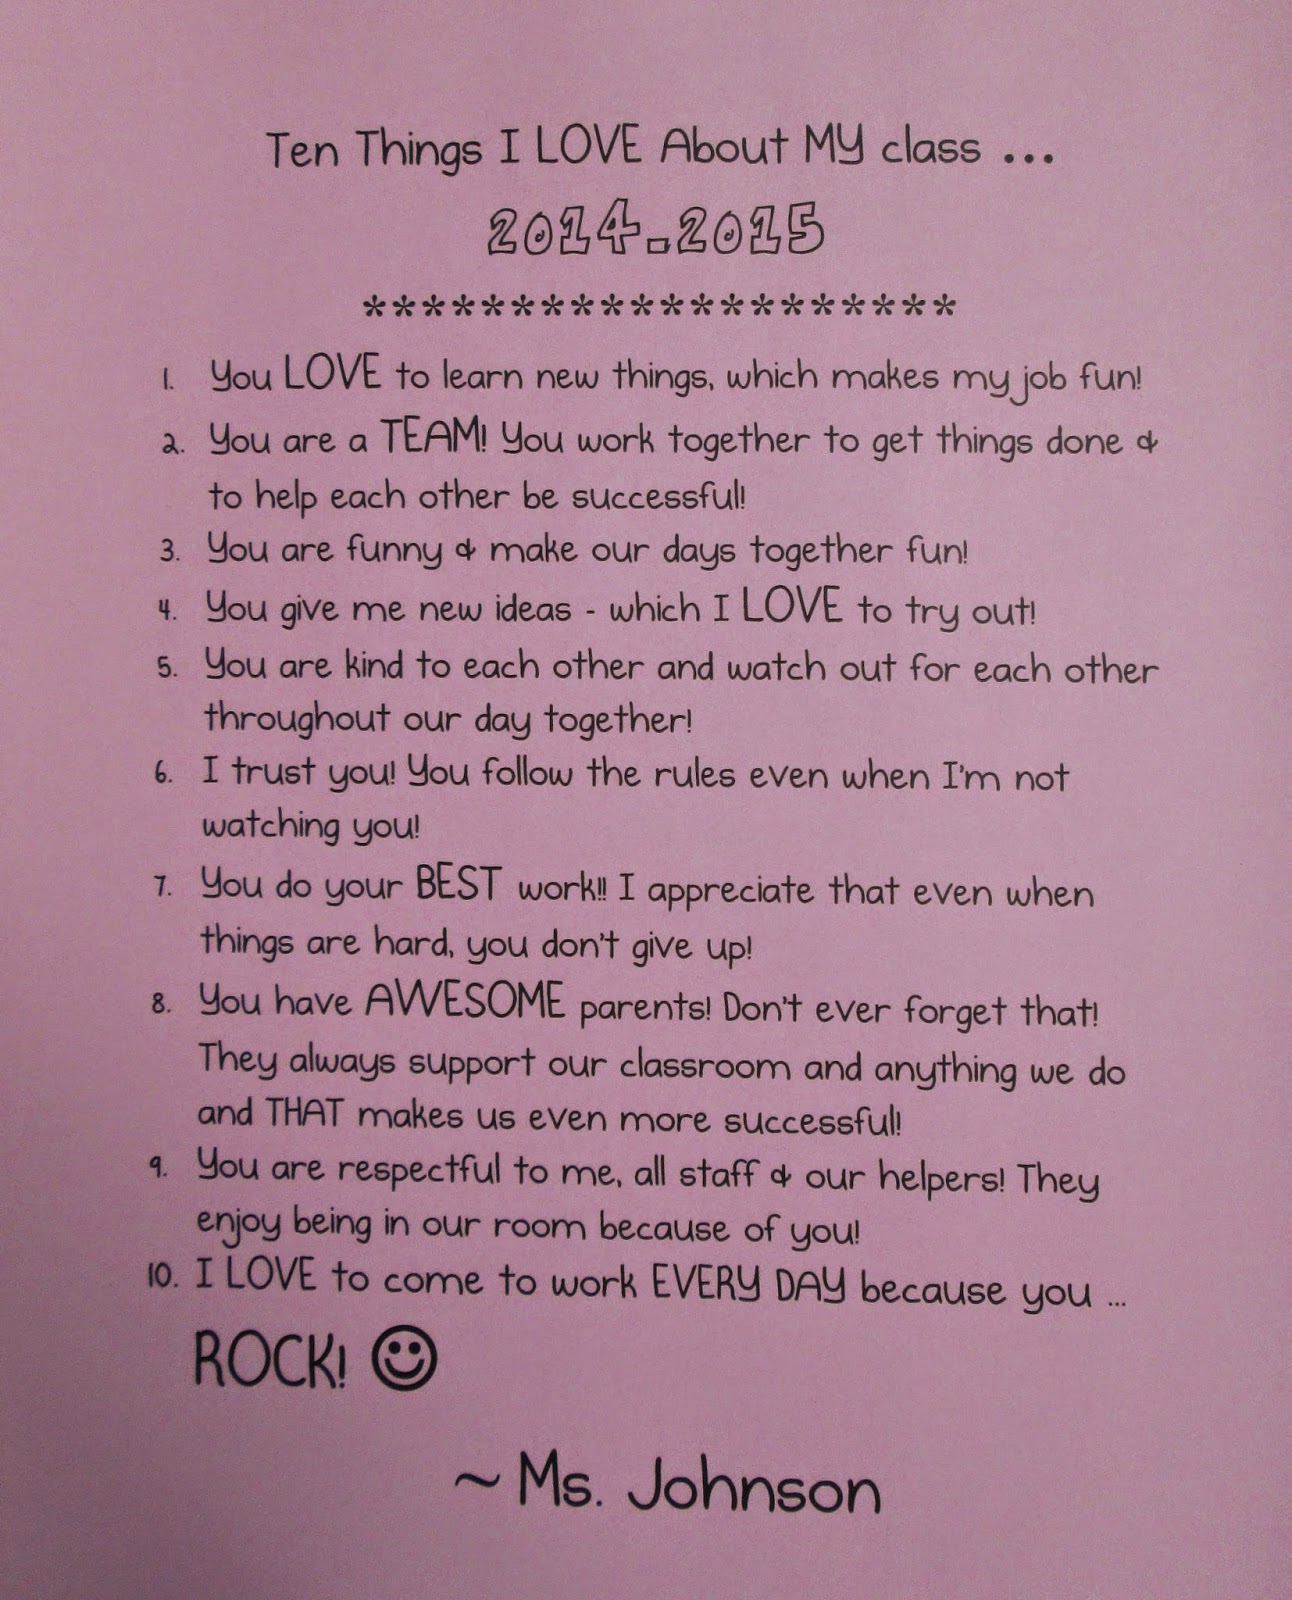 Ten Things I LOVE About MY class ...
2014-2015
********************
1. You LOVE to learn new things, which makes my job fun!
2. You are a TEAM! You work together to get things done &
to help each other be successful!
3. You are funny & make our days together fun!
4. You give me new ideas - which I LOVE to try out!
5. You are kind to each other and watch out for each other
throughout our day together!
6. I trust you! You follow the rules even when I'm not
watching you!
7. You do your BEST work!! I appreciate that even when
things are hard, you don't give up!
8. You have AWESOME parents! Don't ever forget that!
They always support our classroom and anything we do
and THAT makes us even more successful!
9. You are respectful to me, all staff & our helpers! They
enjoy being in our room because of you!
10. I LOVE to come to work EVERY DAY because you ...
ROCK! ☺
~ Ms. Johnson